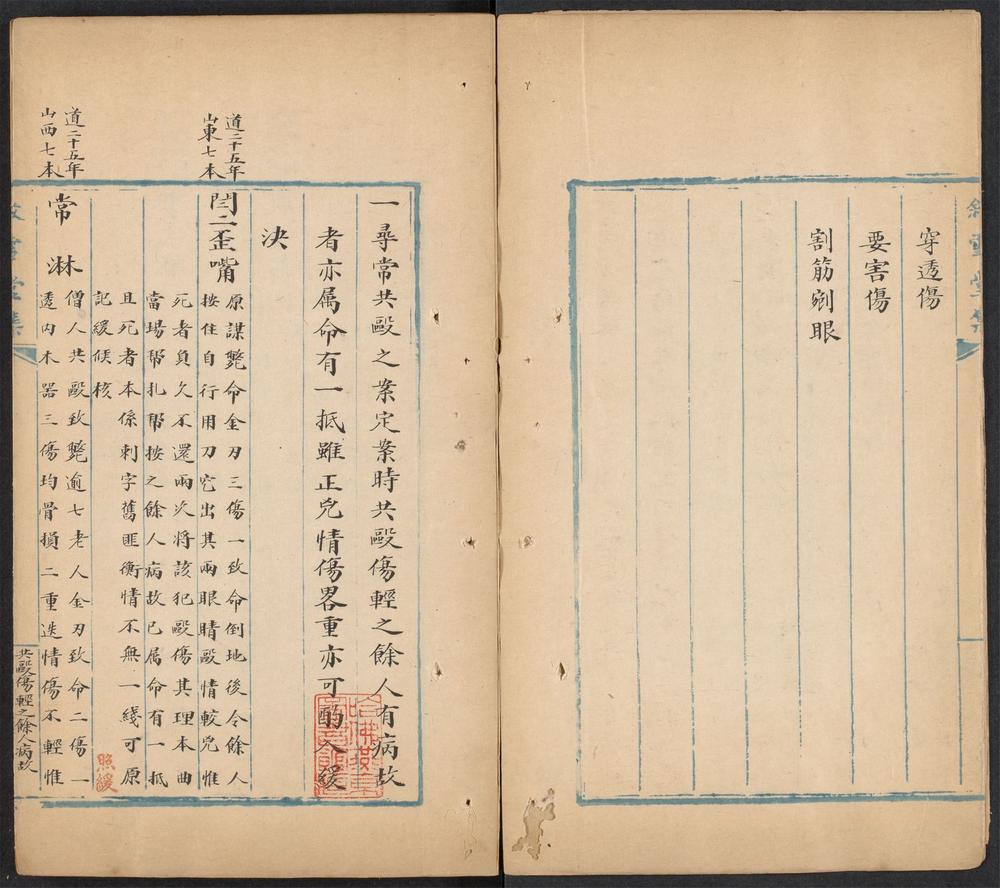 穿透傷
要害傷
割筋剜眼
一尋常共毆之案定案時共毆傷輕之餘人有病故
者亦属命有一抵雖正兇情傷畧重亦可酌入緩
決
道二十五年
山東七本
閆二歪嘴
原謀斃命金刃三傷一致命倒地後令餘人
按住自行用刀挖出其兩眼睛毆情較兇惟
死者負欠不還兩次將該犯毆傷其理本曲
當場帮扎帮按之餘人病故已属命有一抵
且死者本係刺字舊匪衡情不無一綫可原
記緩候核
照緩
道二十五年
山西七本
常淋
僧人共毆致斃逾七老人金刃致命二傷一
透内木器三傷均骨損二重迭情傷不輕惟
共毆傷輕之餘人病故